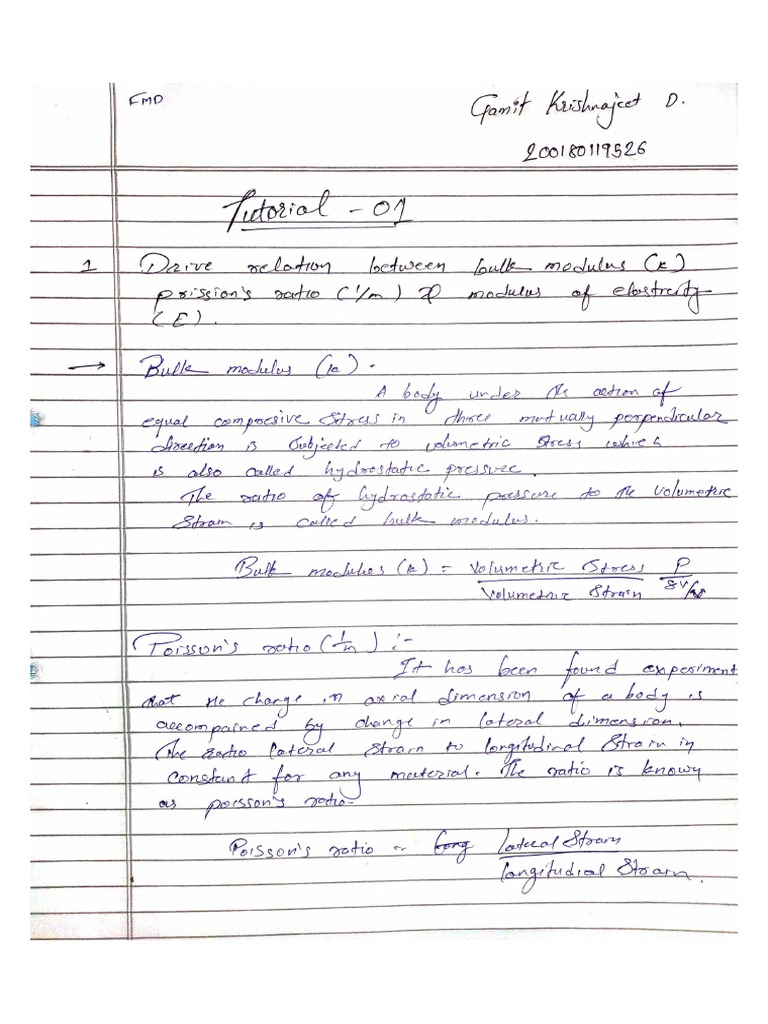 FMD
Gamit Krishnajeet D.
200180119526
Tutorial - 01
1 Drive relation between bulk modulus (K)
prission's ratio (1/m) & modulus of elastrcity
(E).
→ Bulk modulus (k).
A body under the action of
equal compresive stress in three mutually perpendicular
direction is subjected to volumetric stress which
is also called hydrostatic pressure.
The ratio of hydrostatic pressure to the volumetric
strain is called bulk modulus.
Bulk modulus (k) = volumetric stress P
volumetric strain δv/
Poisson's ratio (1/m) :-
It has been found experiment
that the change in axial dimension of a body is
accompained by change in lateral dimension.
The ratio lateral strain to longitudinal strain in
constant for any material. The ratio is knowy
as poisson's ratio-
Poisson's ratio = lateral strain
longitudial strain.